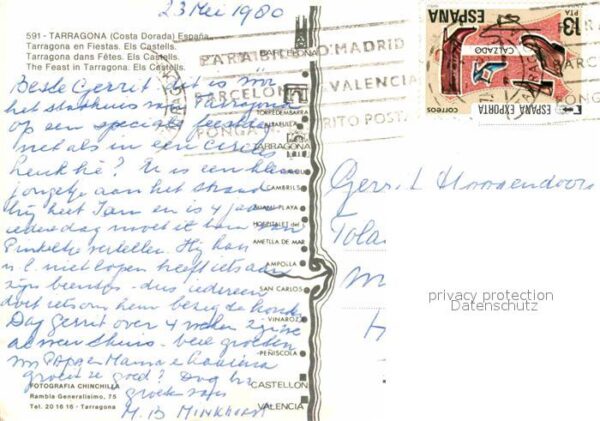 23 Mei 1980
591 - TARRAGONA (Costa Dorada) España
Tarragona en Fiestas. Els Castells.
Tarragona dans Fêtes. Els Castells.
The Feast in Tarragona. Els Castells.
Beste Gerrit, dit is voor
het stadhuis van Tarragona
op een speciale feestdag
net als in een circus
Leuk hè? Er is een klein
jongetje aan het strand
hij heet Jam en is 4 jaar
iedere dag moet ik hem van
Pinkeltje vertellen. Hij kan
n.l. niet lopen heeft iets aan
zijn beentjes - dus iedereen
doet iets om hem bezig te houden
Dag Gerrit over 4 weken zijn we
al weer thuis. Vele groeten
Pappa en Mama
groeien ze goed? Dag
groeten van
M. B. Minkhorst
FOTOGRAFIA CHINCHILLA
Rambla Generalísimo, 75
Tel. 20 16 16 - Tarragona
BARCELONA
TORREDEMBARRA
ALTAFULLA
TARRAGONA
SALOU
CAMBRILS
MIAMI PLAYA
HOSPITALET del I.
AMETLLA DE MAR
AMPOLLA
SAN CARLOS
VINAROZ
PEÑISCOLA
CASTELLON
VALENCIA
PARA MADRID
BARCELONA VALENCIA
PONGA DISTRITO POSTAL
ESPAÑA
13
PTA
CALZADO
CORREOS
ESPAÑA EXPORTA
BARCE
PONGA
Gerrit
privacy protection
Datenschutz